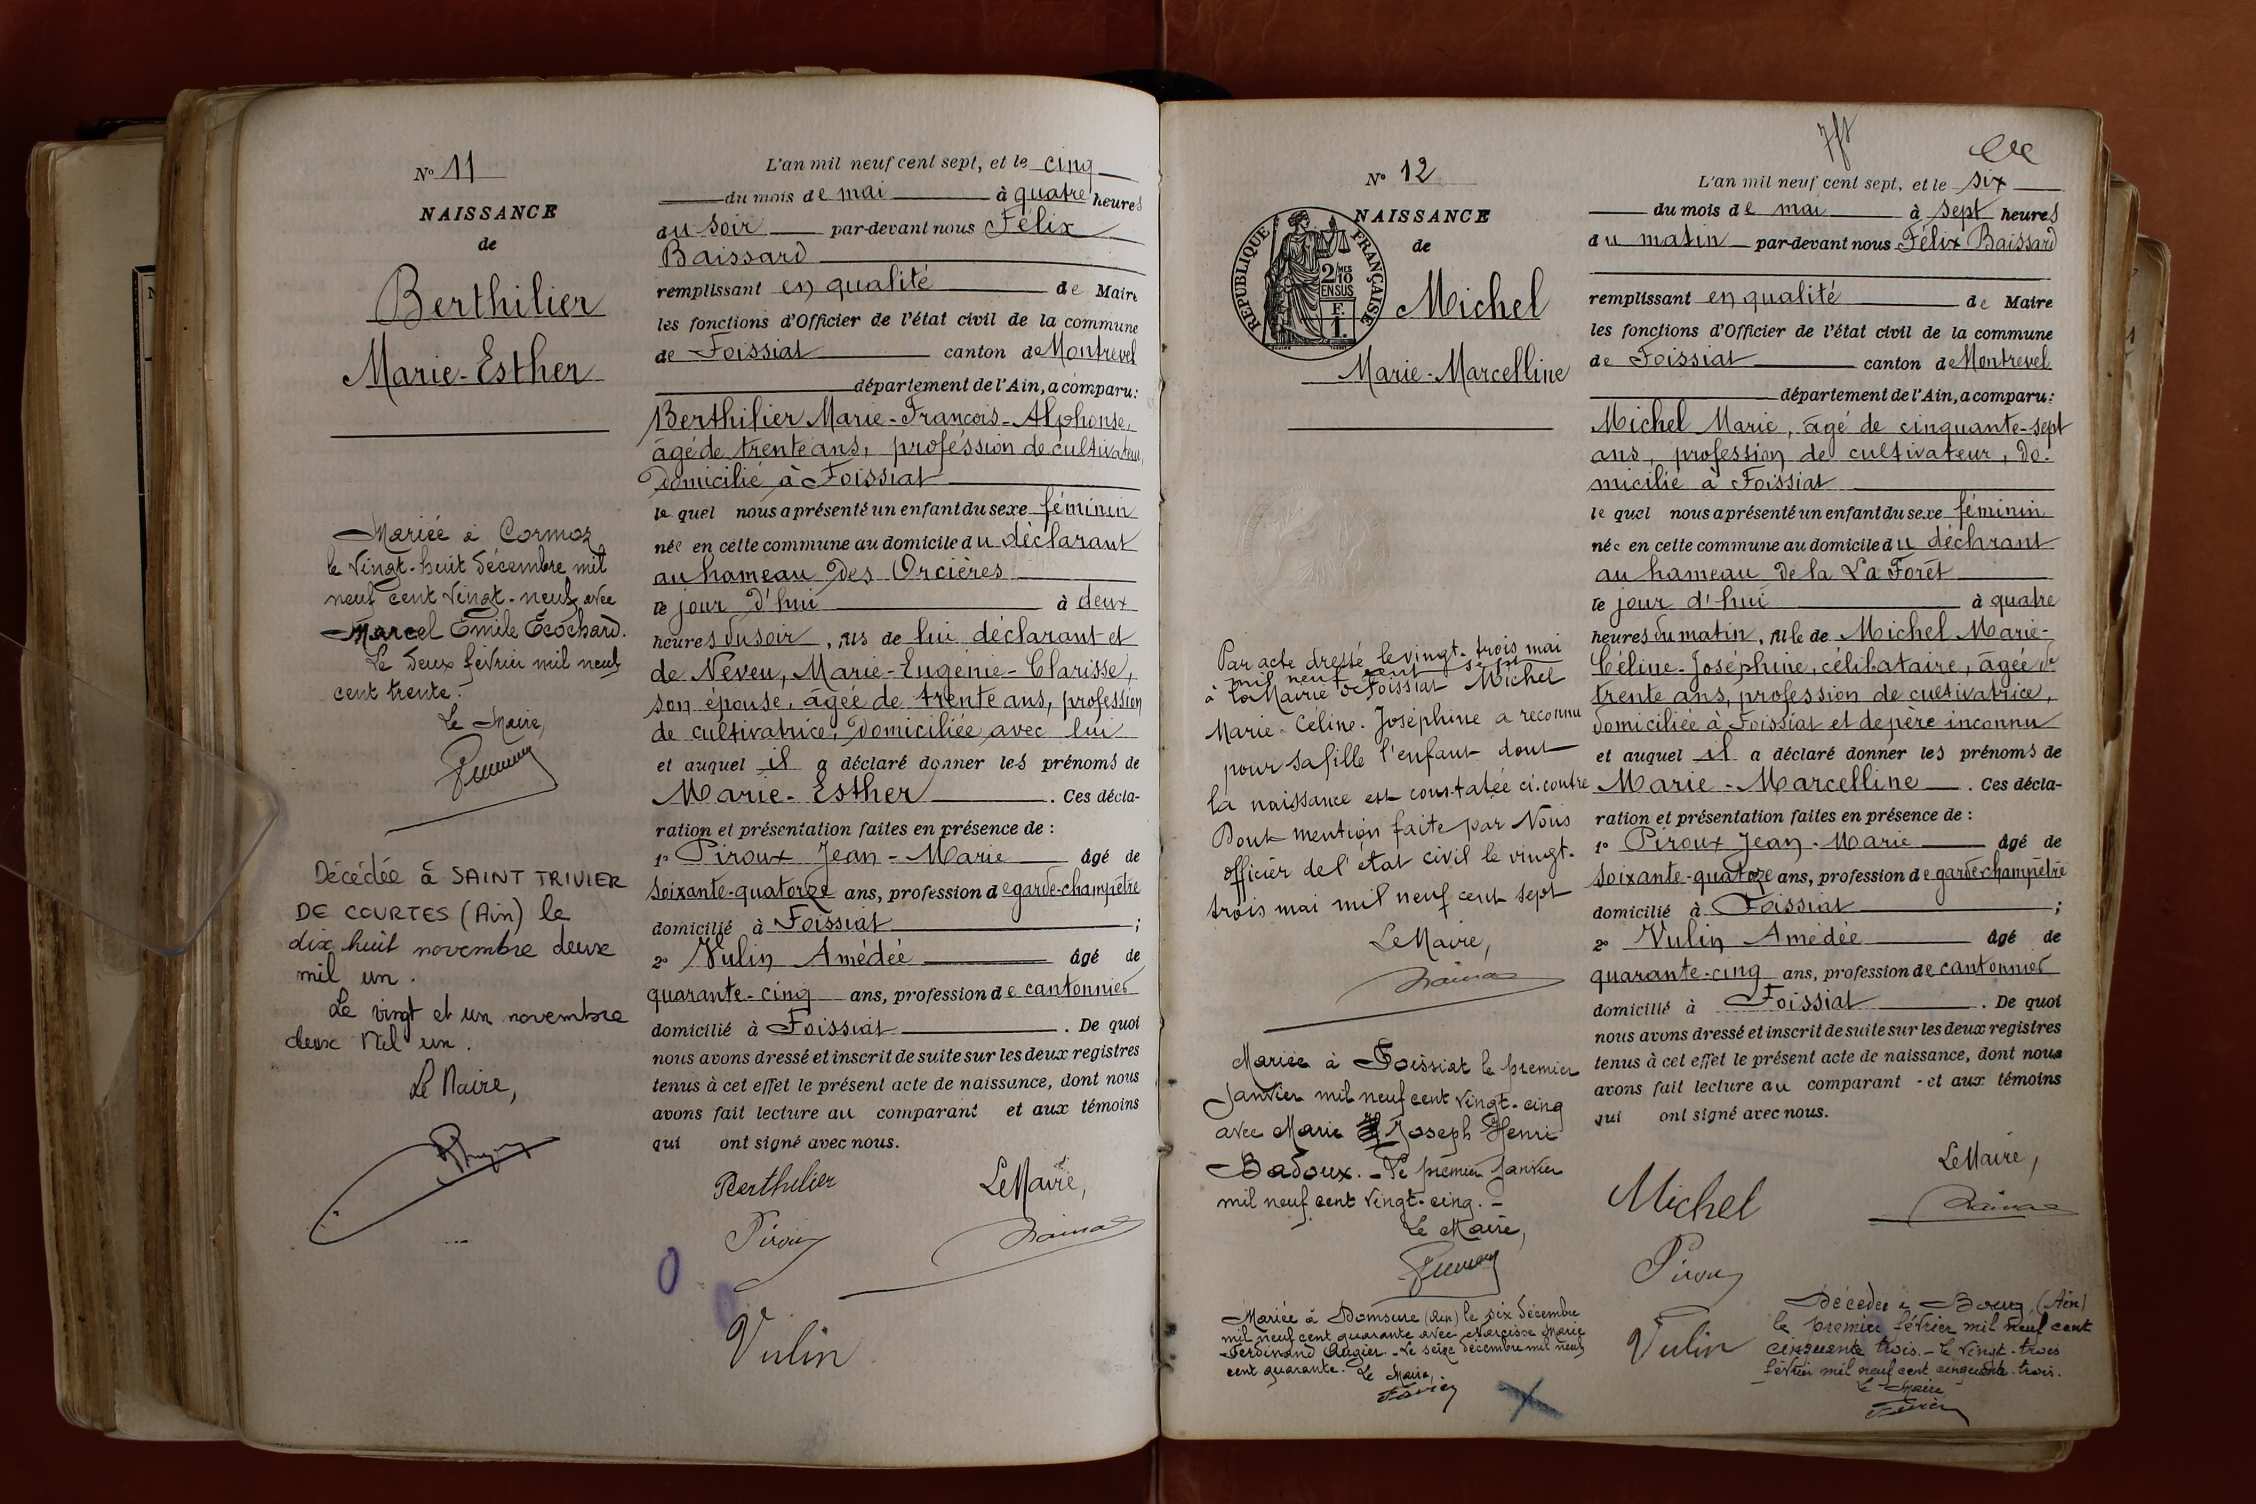 N° 11
NAISSANCE
de
Berthilier
Marie-Esther
Mariée à Cormoz
le vingt-huit décembre mil
neuf cent vingt-neuf avec
Marcel Emile Ecochard.
Le deux février mil neuf
cent trente.
Le Maire,
Décédée à SAINT TRIVIER
DE COURTES (Ain) le
dix huit novembre deux
mil un.
Le vingt et un novembre
deux mil un.
Le Maire,
L'an mil neuf cent sept, et le cinq
du mois de mai à quatre heures
du soir par-devant nous Félix
Baissard
remplissant en qualité de Maire
les fonctions d'Officier de l'état civil de la commune
de Foissiat canton de Montrevel
département de l'Ain, a comparu:
Berthilier Marie-François-Alphonse,
âgé de trente ans, profession de cultivateur,
domicilié à Foissiat
lequel nous a présenté un enfant du sexe féminin
née en cette commune au domicile du déclarant
au hameau des Orcières
le jour d'hui à deux
heures du soir, fils de lui déclarant et
de Neveu, Marie-Eugénie-Clarisse,
son épouse, âgée de trente ans, profession
de cultivatrice, domiciliée avec lui
et auquel il a déclaré donner les prénoms de
Marie-Esther. Ces décla-
ration et présentation faites en présence de :
1° Piroux Jean-Marie âgé de
soixante-quatorze ans, profession de garde-champêtre
domicilié à Foissiat ;
2° Vulin Amédée âgé de
quarante-cinq ans, profession de cantonnier
domicilié à Foissiat. De quoi
nous avons dressé et inscrit de suite sur les deux registres
tenus à cet effet le présent acte de naissance, dont nous
avons fait lecture au comparant et aux témoins
qui ont signé avec nous.
Berthilier Le Maire,
Piroux
Vulin
N° 12
NAISSANCE
de
RÉPUBLIQUE FRANÇAISE
2/10 MES
EN SUS
F.
1.
Michel
Marie-Marcelline
Par acte dressé le vingt-trois mai
mil neuf cent sept
à la Mairie de Foissiat Michel
Marie-Céline-Joséphine a reconnu
pour sa fille l'enfant dont
la naissance est constatée ci-contre
Dont mention faite par Nous
officier de l'état civil le vingt-
trois mai mil neuf cent sept
Le Maire,
Mariée à Foissiat le premier
janvier mil neuf cent vingt-cinq
avec Marie Joseph Henri
Badoux. - Le premier janvier
mil neuf cent vingt-cinq. -
Le Maire,
Mariée à Domsure (Ain) le six décembre
mil neuf cent quarante avec Narcisse Marie
Ferdinand Augier. - Le seize décembre mil neuf
cent quarante. Le Maire,
L'an mil neuf cent sept, et le six
du mois de mai à sept heures
du matin par-devant nous Félix Baissard
remplissant en qualité de Maire
les fonctions d'Officier de l'état civil de la commune
de Foissiat canton de Montrevel
département de l'Ain, a comparu:
Michel Marie, âgé de cinquante-sept
ans, profession de cultivateur, do-
micilié à Foissiat
lequel nous a présenté un enfant du sexe féminin
née en cette commune au domicile du déclarant
au hameau de la La Forêt
le jour d'hui à quatre
heures du matin, fille de Michel Marie-
Céline-Joséphine, célibataire, âgée de
trente ans, profession de cultivatrice,
domiciliée à Foissiat et de père inconnu
et auquel il a déclaré donner les prénoms de
Marie-Marcelline. Ces décla-
ration et présentation faites en présence de :
1° Piroux Jean-Marie âgé de
soixante-quatoze ans, profession de garde-champêtre
domicilié à Foissiat ;
2° Vulin Amédée âgé de
quarante-cinq ans, profession de cantonnier
domicilié à Foissiat. De quoi
nous avons dressé et inscrit de suite sur les deux registres
tenus à cet effet le présent acte de naissance, dont nous
avons fait lecture au comparant - et aux témoins
qui ont signé avec nous.
Le Maire,
Michel
Piroux
Vulin
Décédée à Bourg (Ain)
le premier février mil neuf cent
cinquante trois. - Le vingt-trois
février mil neuf cent cinquante-trois.
Le Maire